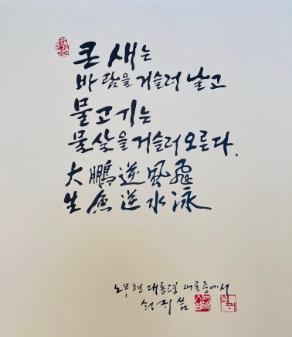 큰 새는
바람을 거슬러 날고
물고기는
물살을 거슬러 오른다.
大鵬逆風飛
生魚逆水泳
노무현 대통령 어록중에서